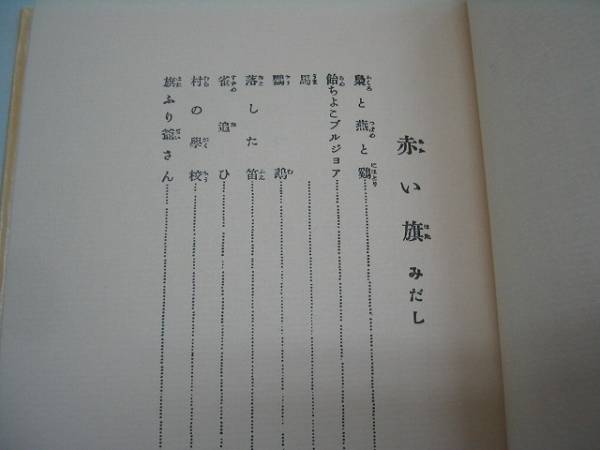 赤い旗 みだし
梟と燕と鷄
飴ちよこブルジョア
馬
鸚鵡
落した笛
雀追ひ
村の學校
旗ふり爺さん